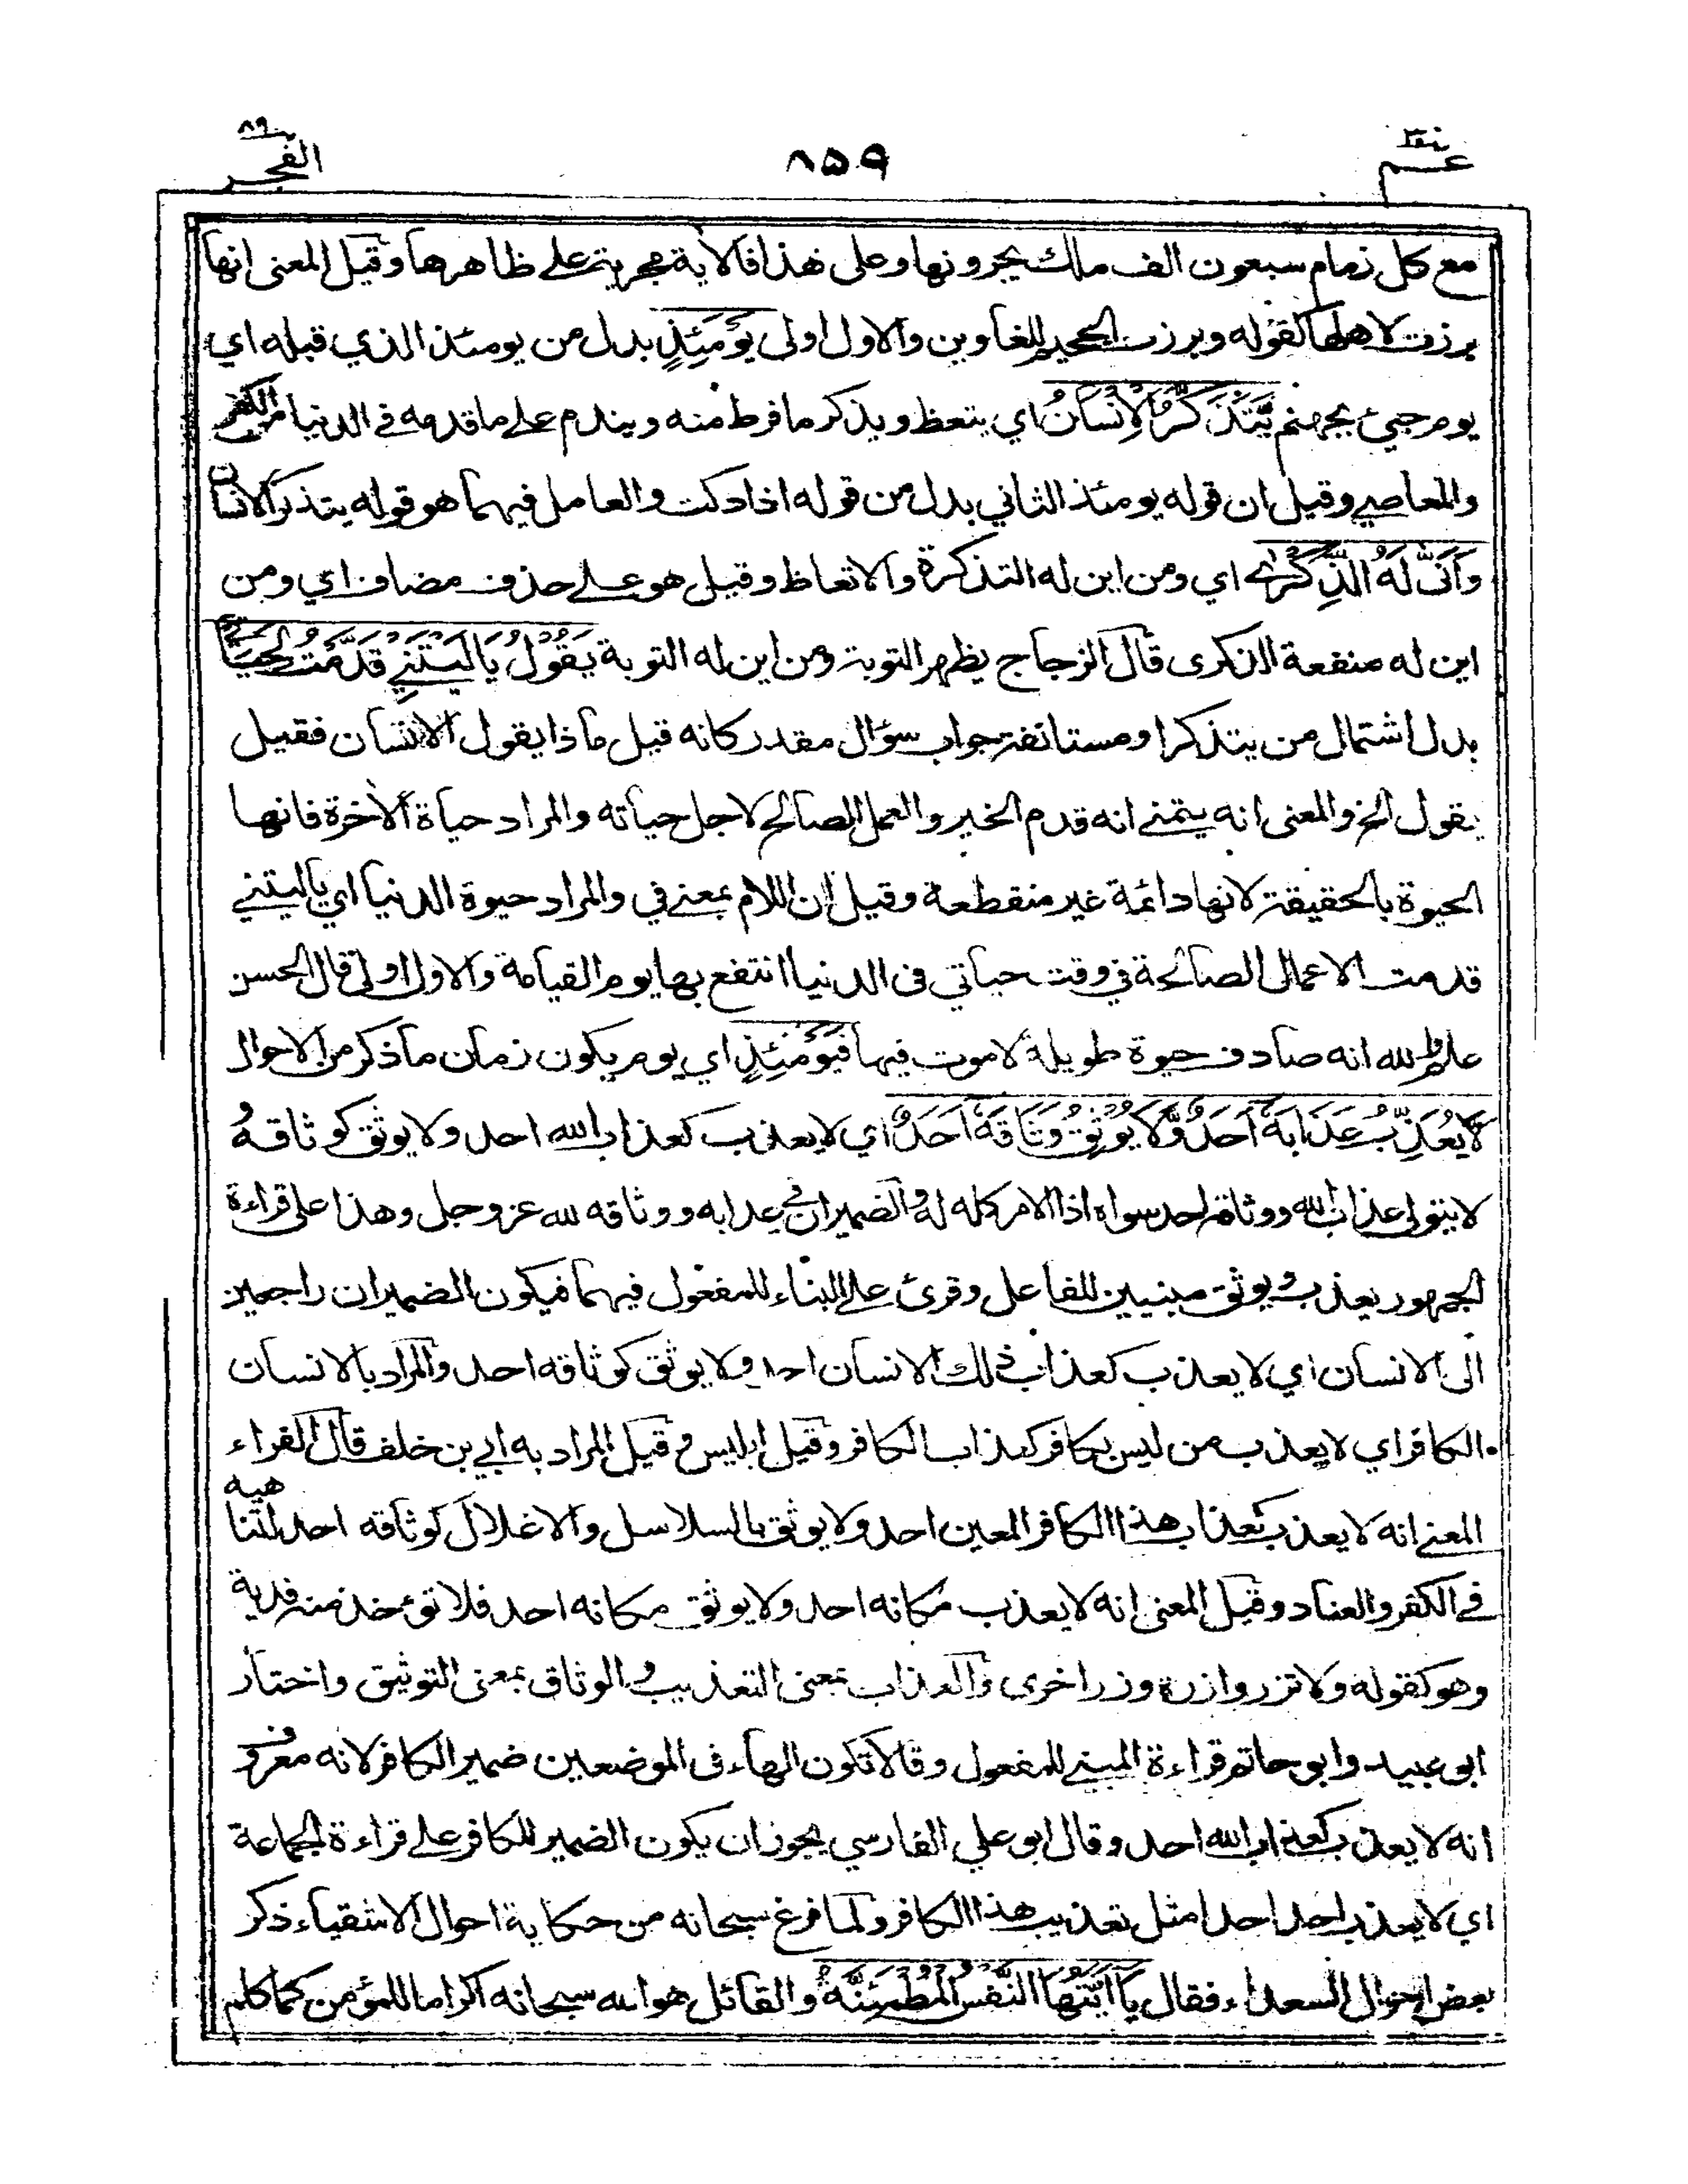 عم ٣٠
٨٥٩
الفجر ٨٩
مع كل زمام سبعون الف ملك يجرونها وعلى هذا فالاية مجرية على ظاهرها وقيل المعنى انها
برزت لاهلها كقوله وبرزت الجحيم للغاوين والاول اولى يَوْمَئِذٍ بدل من يومئذ الذي قبله اي
يوم جيئ بجهنم يَّتَذَكَّرُ الْاِنْسَانُ اي يتعظ ويذكر ما فرط منه ويندم على ما قدمه في الدنيا من الكفر
والمعاصي وقيل ان قوله يومئذ الثاني بدل من قوله اذا دكت والعامل فيهما هو قوله يتذكر الانسان
وَاَنّٰى لَهُ الذِّكْرٰى اي ومن اين له التذكرة والاتعاظ وقيل هو على حذف مضاف اي ومن
اين له منفعة الذكرى قال الزجاج يظهر التوبة ومن اين له التوبة يَقُوْلُ يَا لَيْتَنِيْ قَدَّمْتُ لِحَيَاتِيْ
بدل اشتمال من يتذكر او مستانفة جواب سؤال مقدر كانه قيل ما ذا يقول الانسان فقيل
يقول الخ والمعنى انه يتمنى انه قدم الخير والعمل الصالح لاجل حياته والمراد حياة الاخرة فانها
الحيوة بالحقيقة لانها دائمة غير منقطعة وقيل ان اللام بمعنى في والمراد حيوة الدنيا اي يا ليتني
قدمت الاعمال الصالحة في وقت حياتي فى الدنيا انتفع بها يوم القيامة والاول اولى قال الحسن
علم والله انه صادف حيوة طويلة لا موت فيها فَيَوْمَئِذٍ اي يوم يكون زمان ما ذكر من الاحوال
لَا يُعَذِّبُ عَذَابَهٗ اَحَدٌ وَّلَا يُوْثِقُ وَثَاقَهٗ اَحَدٌ اي لا يعذب كعذاب الله احد ولا يوثق كوثاقه
لا يتولى عذاب الله ووثاقه احد سواه اذ الامر كله له والضميران في عذابه ووثاقه لله عز وجل وهذا على قراءة
الجمهور يعذب ويوثق مبنيين للفاعل وقرئ على البناء للمفعول فيهما فيكون الضميران راجعين
الى الانسان اي لا يعذب كعذاب ذلك الانسان احد ولا يوثق كوثاقه احد والمراد بالانسان
الكافر اي لا يعذب من ليس بكافر كعذاب الكافر وقيل ابليس وقيل المراد به ابي بن خلف قال الفراء
المعنى انه لا يعذب كعذاب هذا الكافر المعين احد ولا يوثق بالسلاسل والاغلال كوثاقه احد لتناهيه
في الكفر والعناد وقيل المعنى انه لا يعذب مكانه احد ولا يوثق مكانه احد فلا تؤخذ منه فدية
وهو كقوله ولا تزر وازرة وزر اخرى والعذاب بمعنى التعذيب والوثاق بمعنى التوثيق واختار
ابو عبيد وابو حاتم قراءة المبني للمفعول وقالا تكون الهاء فى الموضعين ضمير الكافر لانه معروف
انه لا يعذب كعذاب الله احد وقال ابو علي الفارسي يجوز ان يكون الضمير للكافر على قراءة الجماعة
اي لا يعذب احد احدا مثل تعذيب هذا الكافر ولما فرغ سبحانه من حكاية احوال الاشقياء ذكر
بعض احوال السعداء فقال يَا اَيَّتُهَا النَّفْسُ الْمُطْمَئِنَّةُ والقائل هو الله سبحانه اكراما للمؤمن كما كلم